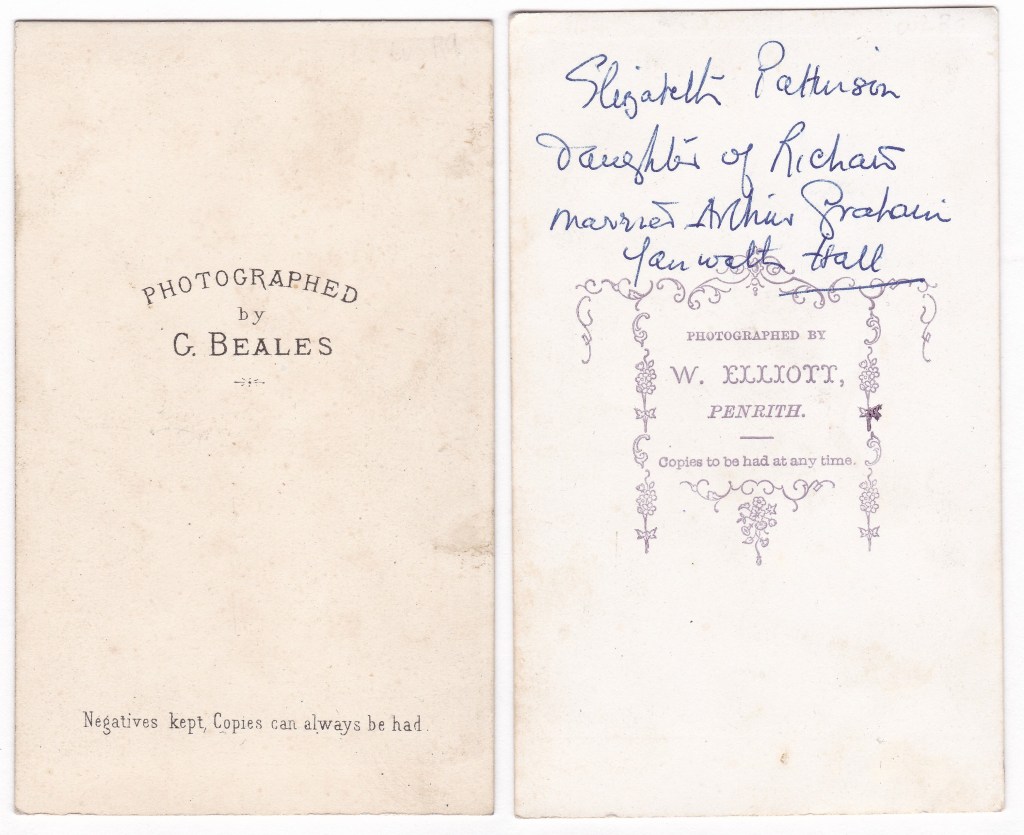 PHOTOGRAPHED
by
G. BEALES
Negatives kept, Copies can always be had.
Elizabeth Pattinson
Daughter of Richard
married Arthur Graham
Yanwath Hall
PHOTOGRAPHED BY
W. ELLIOTT,
PENRITH.
Copies to be had at any time.